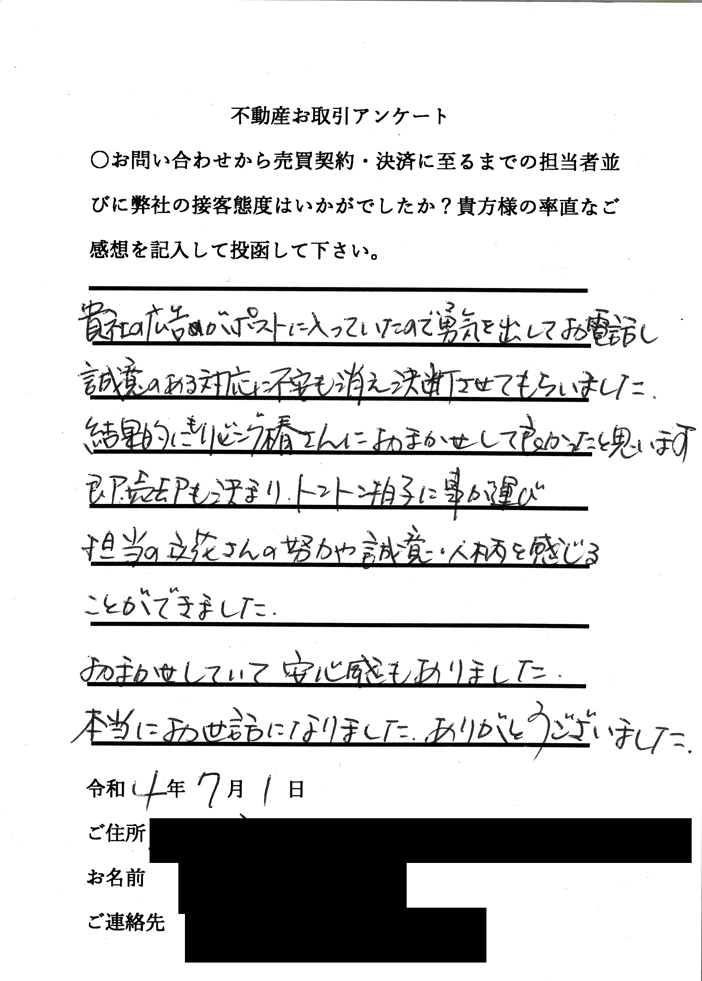 不動産お取引アンケート
〇お問い合わせから売買契約・決済に至るまでの担当者並
びに弊社の接客態度はいかがでしたか？貴方様の率直なご
感想を記入して投函して下さい。
貴社の広告がポストに入っていたので勇気を出してお電話し
誠意のある対応に不安も消え決断させてもらいました.
結果的にもリビング椿さんにおまかせして良かったと思います
即売却も決まり、トントン拍子に事が運び
担当の立花さんの努力や誠意・人柄を感じる
ことができました.
おまかせしていて安心感もありました.
本当にお世話になりました.ありがとうございました.
令和4年7月1日
ご住所
お名前
ご連絡先